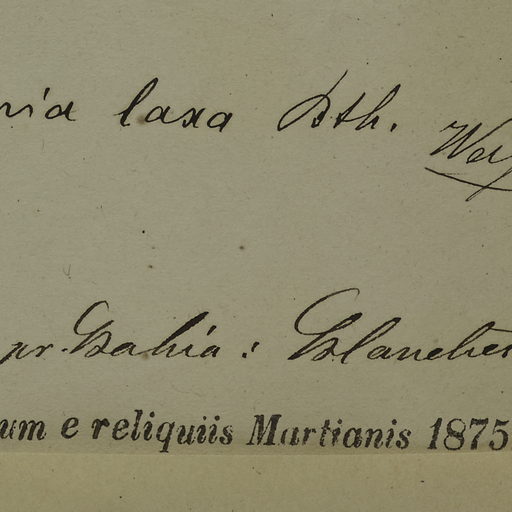 nia laxa Bth.
pr. Bahia: Blanchet
um e reliquiis Martianis 1875